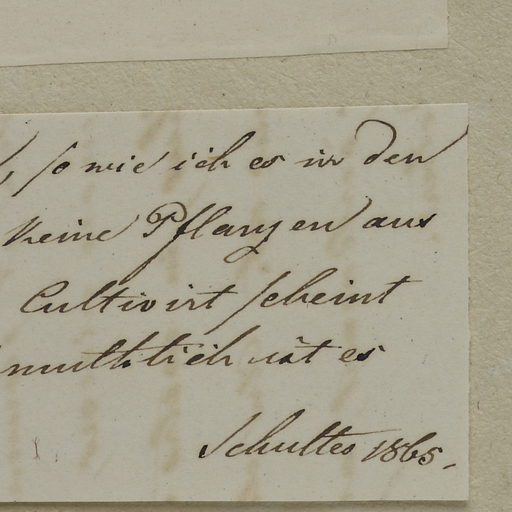 , so wie ich es in den
keine Pflanzen aus
Cultivirt scheint
muthtlich ist es
Schultes 1865.